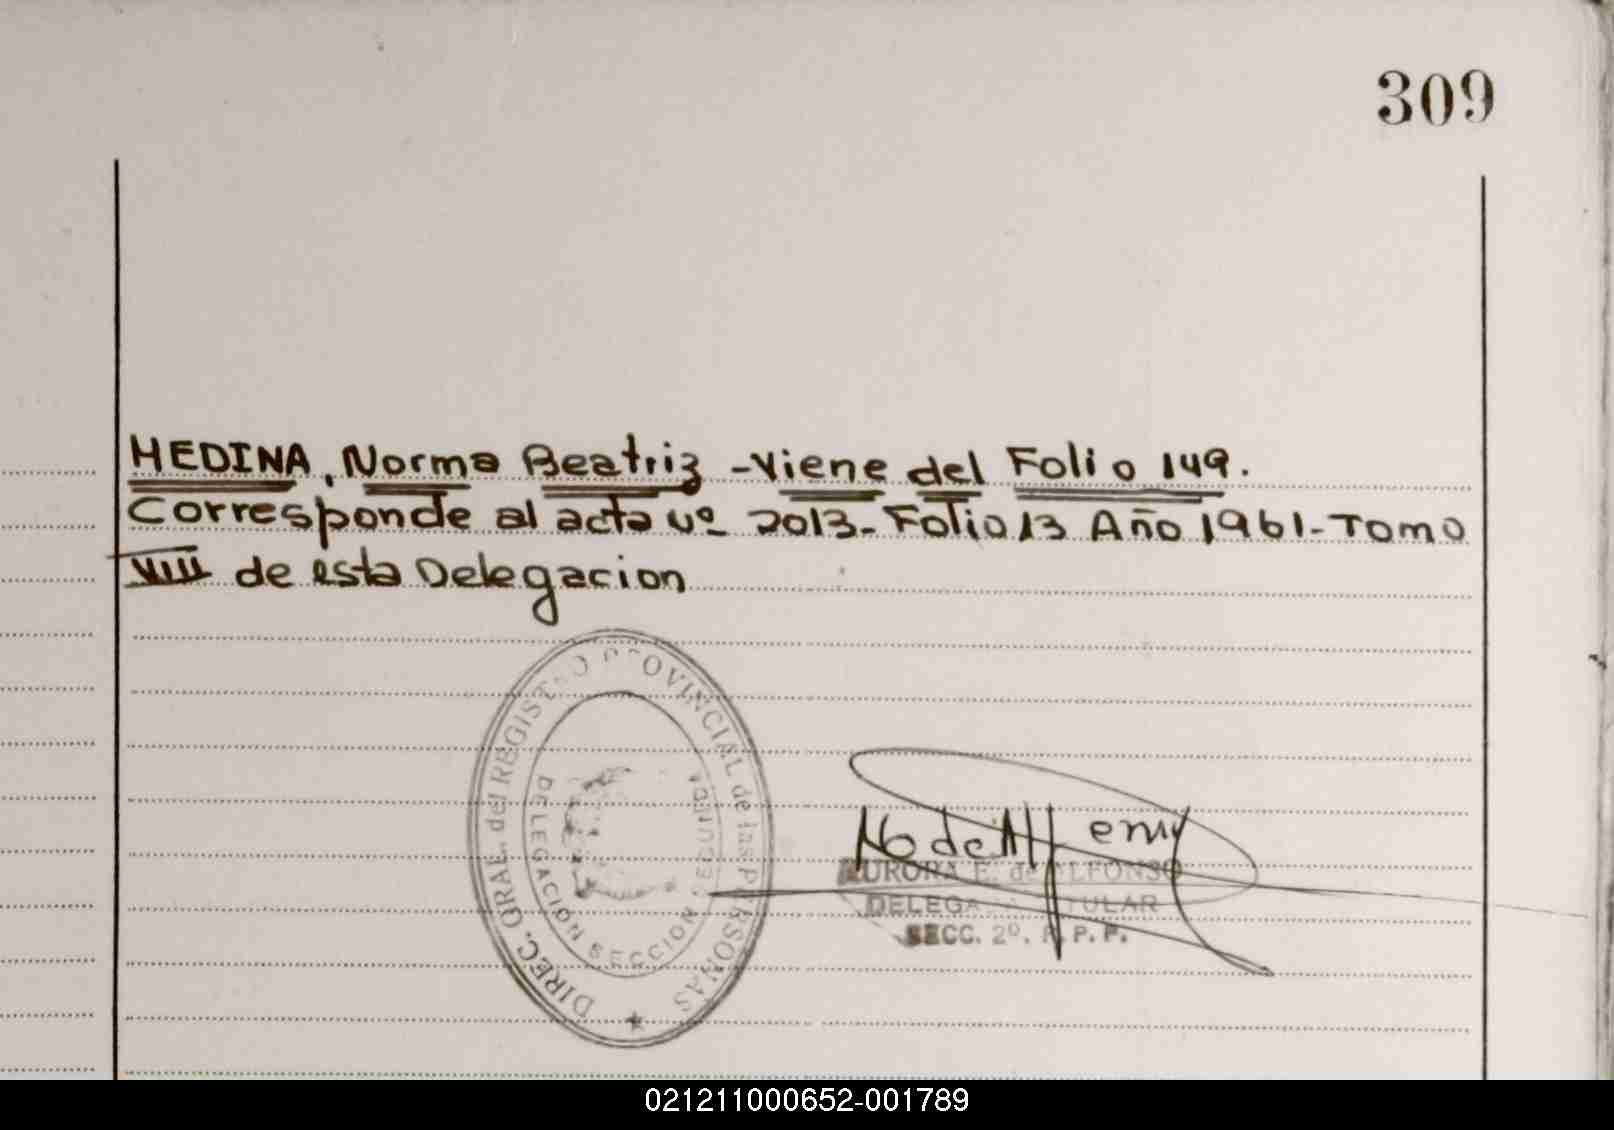 309
MEDINA, Norma Beatriz - Viene del Folio 149.
Corresponde al acta Nº 2013 - Folio 13 Año 1961 - Tomo
VIII de esta Delegacion
DIREC. GRAL. del REGISTRO PROVINCIAL de las PERSONAS
DELEGACION SECCION SEGUNDA
AURORA E. de ALFONSO
DELEGADA TITULAR
SECC. 2º. R. P. P.
021211000652-001789